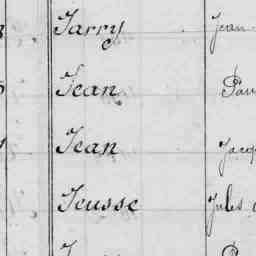 Jarry Jean
Jean Pau
Jean Jacq
Jeusse Jules